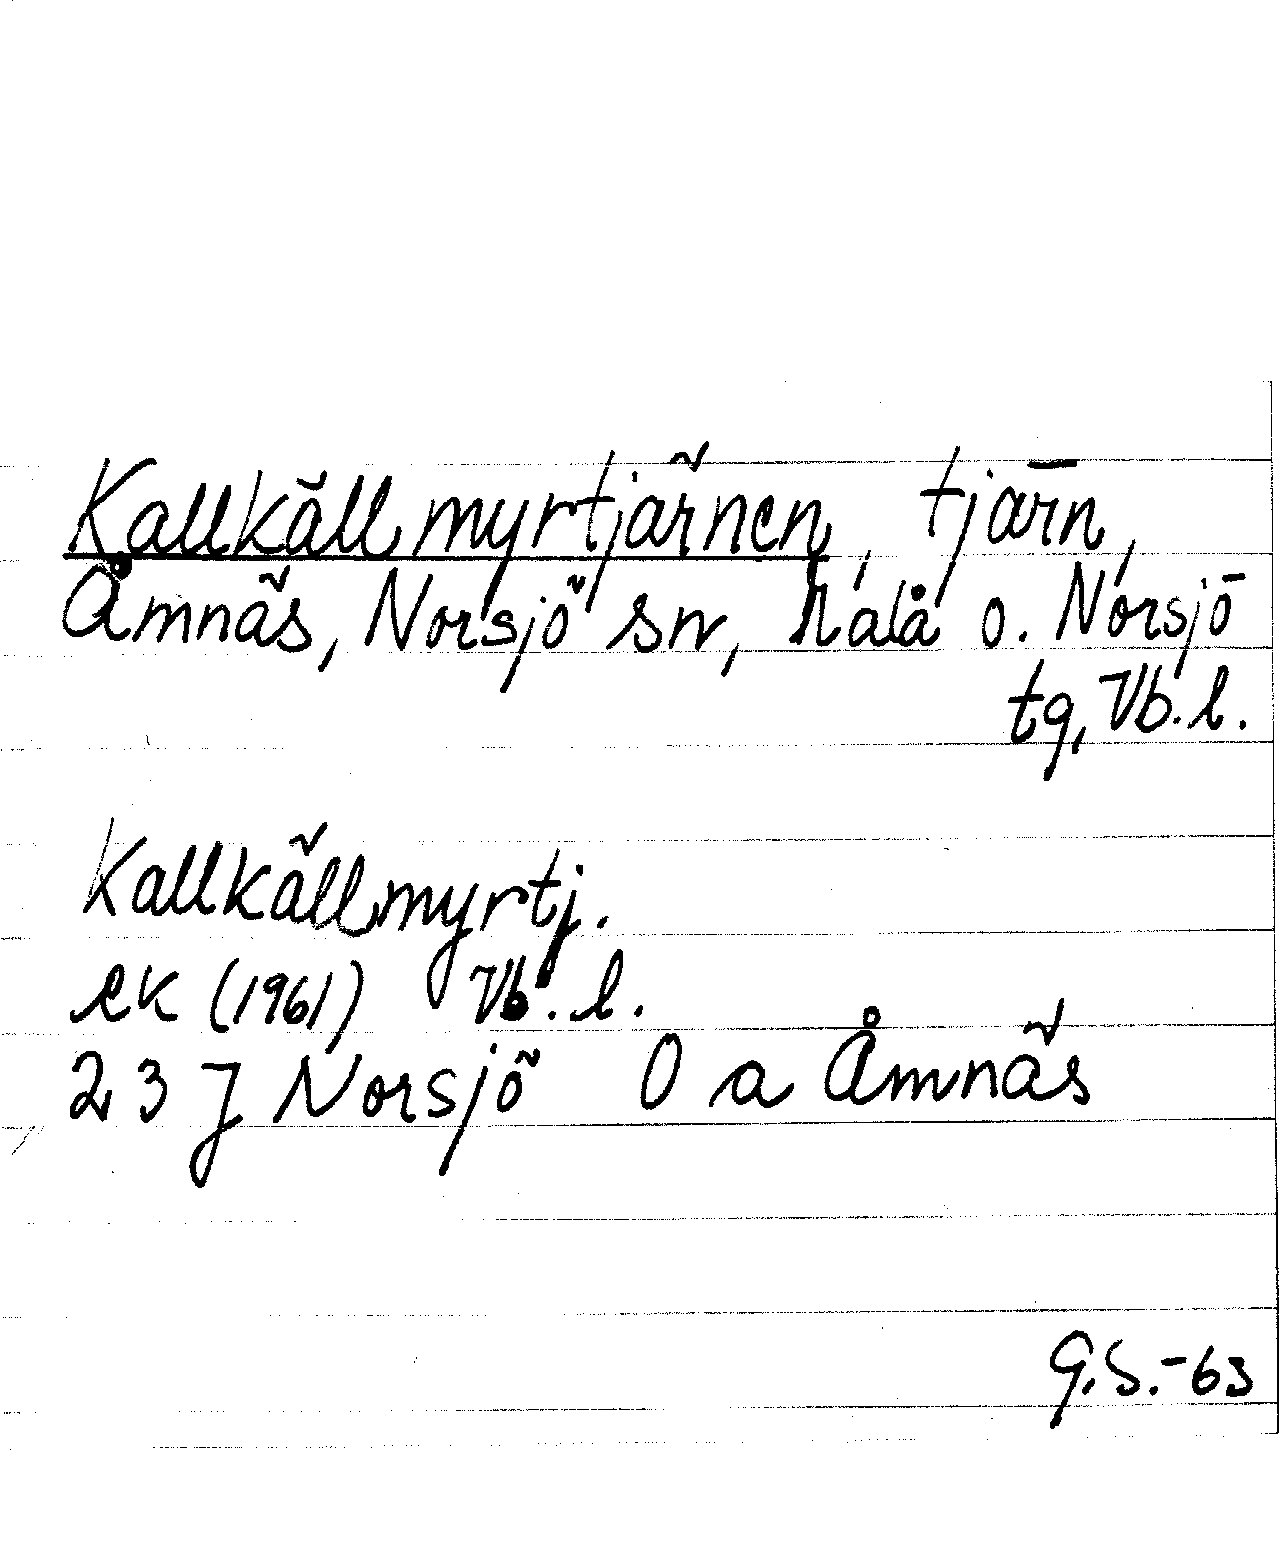 Kallkällmyrtjärnen, tjärn,
Åmnäs, Norsjö sn, Malå o. Norsjö
tg, Vb. l.
Kallkällmyrtj.
ek (1961) Vb. l.
23 J Norsjö 0 a Åmnäs
G.S.-63